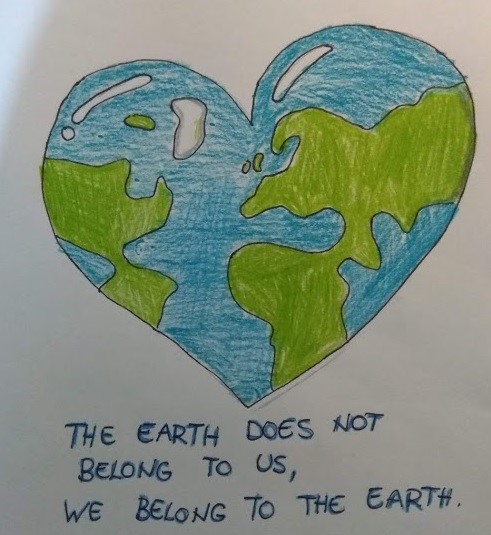 THE EARTH DOES NOT
BELONG TO US,
WE BELONG TO THE EARTH.